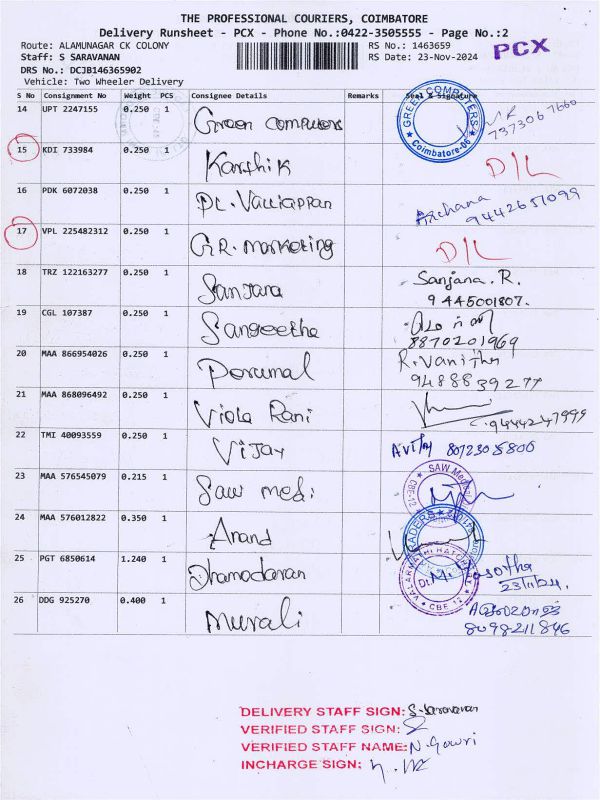 THE PROFESSIONAL COURIERS, COIMBATORE
Delivery Runsheet - PCX - Phone No.:0422-3505555 - Page No.:2
Route: ALAMUNAGAR CK COLONY RS No.: 1463659 PCX
Staff: S SARAVANAN RS Date: 23-Nov-2024
DRS No.: DCJB146365902
Vehicle: Two Wheeler Delivery
S No Consignment No Weight PCS Consignee Details Remarks Seal & Signature
14 UPT 2247155 0.250 1 Green computers GREEN COMPUTERS Coimbatore-06 7373067660
15 KDI 733984 0.250 1 Karthik D/L
16 PDK 6072038 0.250 1 PL. Valliappan Archana 9442651099
17 VPL 225482312 0.250 1 G.R. marketing D/L
18 TRZ 122163277 0.250 1 Sanjana Sanjana. R. 9445001807.
19 CGL 107387 0.250 1 Sangeetha 8870201969
20 MAA 866954026 0.250 1 Perumal R. Vanitha 9488839277
21 MAA 868096492 0.250 1 Viola Rani 9444247999
22 TMI 40093559 0.250 1 Vijay 8072305800
23 MAA 576545079 0.215 1 Saw medi SAW Medi CBE-12
24 MAA 576012822 0.350 1 Anand
25 PGT 6850614 1.240 1 Dhamodaran CBE 12 23/11/24.
26 DDG 925270 0.400 1 Murali 8098211846
DELIVERY STAFF SIGN: S. Saravanan
VERIFIED STAFF SIGN:
VERIFIED STAFF NAME: N. Gowri
INCHARGE SIGN: